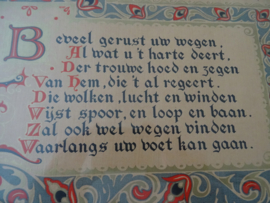 Beveel gerust uw wegen,
Al wat u 't harte deert,
Der trouwe hoed en zegen
Van Hem, die 't al regeert.
Die wolken, lucht en winden
Wijst spoor, en loop en baan.
Zal ook wel wegen vinden
Waarlangs uw voet kan gaan.